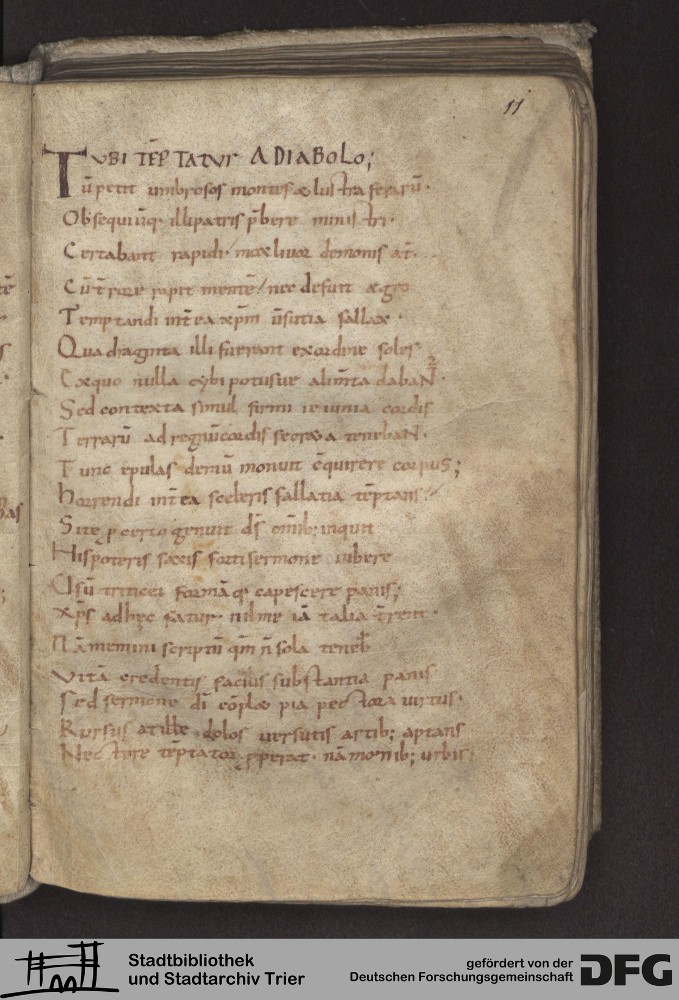 11
UBI TEP̄TATUR A DIABOLO;
Tū petit umbrosos montis & lustra ferarū·
Obsequiūq· illi patris p̄bere ministri·
Certabant rapidi· mox livor demonis at̄·
rapit mentē nec desunt
Temptandi int̄ea xp̄m ūsutia fallax·
Quadraginta illi fuerant ex ordine soles
Ex quo nulla cybi potusue alim̄ta dabaN̄·
Sed contexta simul firmi ieiunia cordis
Terrarū ad regnū cordis tenebaN̄·
Tunc epulas demū monuit c̄quirere corpus;
horrendi int̄ea sceleris fallatia tēptans·
Si te p certo genuit ds̄ om̄ib; inquit
His poteris saxis forti sermone iubere
sū triticei formāq· capescere panis;
xp̄s ad hęc fatur· nil me iā talia t̄rent·
Nā memini scriptū qm̄ n̄ sola teneb̄
Vitā credentis facius substantia panis
Sed sermone dī pia pectora virtus·
Rursus at ille dolos versutis artib; aptans
Nectore tēptator pperat· nā monib; urbis·
Stadtbibliothek
und Stadtarchiv Trier
gefördert von der
Deutschen Forschungsgemeinschaft
DFG